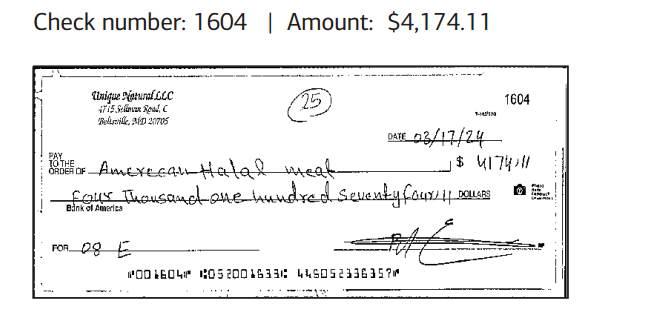 Check number: 1604 | Amount: $4,174.11
Unique Natural LLC
4715 Sellman Road, C
Beltsville, MD 20705
25
1604
DATE 03/17/24
PAY
TO THE
ORDER OF American Halal meat $ 4174.11
Four Thousand one hundred seventy four 11 DOLLARS
Bank of America
FOR 08 E
⑈001604⑈ ⑆052001633⑆ 446052336357⑈